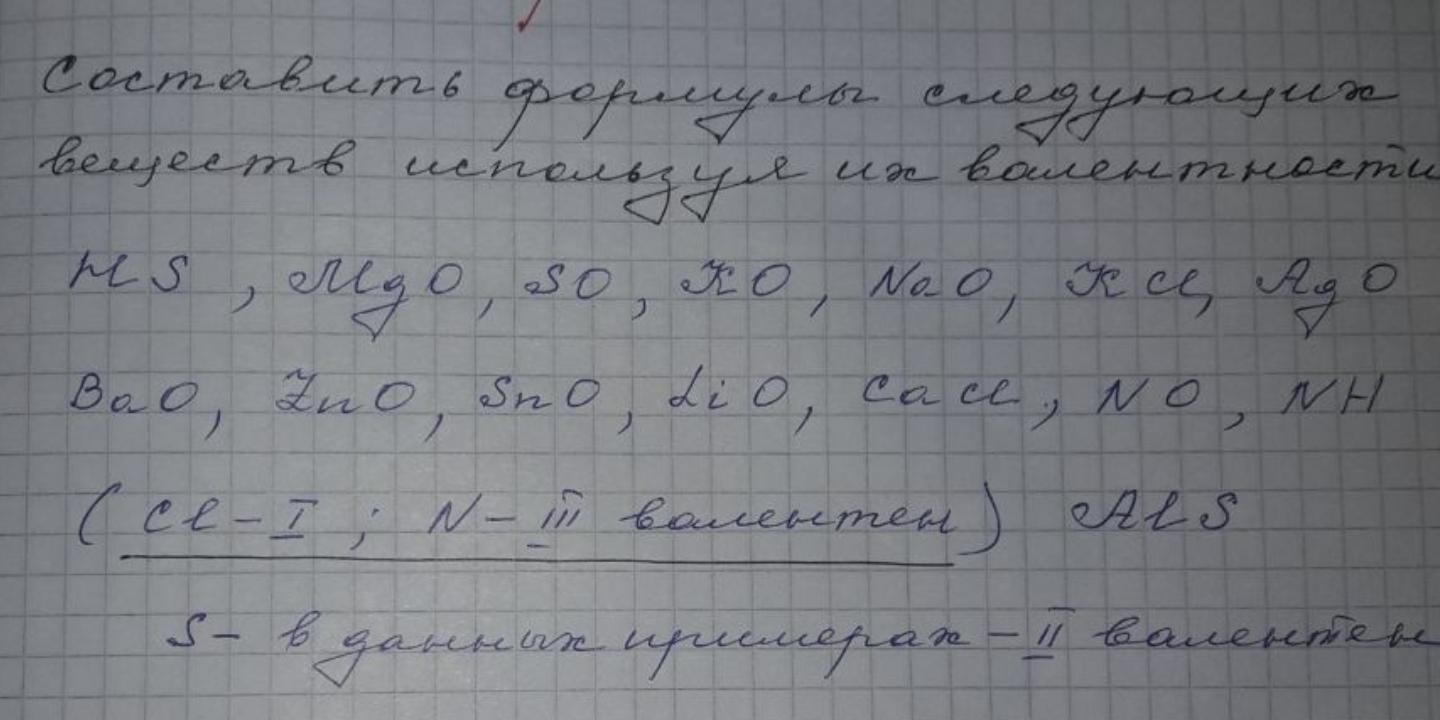 Составить формулы следующих
веществ используя их валентности
HS, MgO, SO, KO, NaO, KCl, AgO
BaO, ZnO, SnO, LiO, CaCl, NO, NH
(Cl-I; N-III валентен) AlS
S- в данных примерах - II валентен